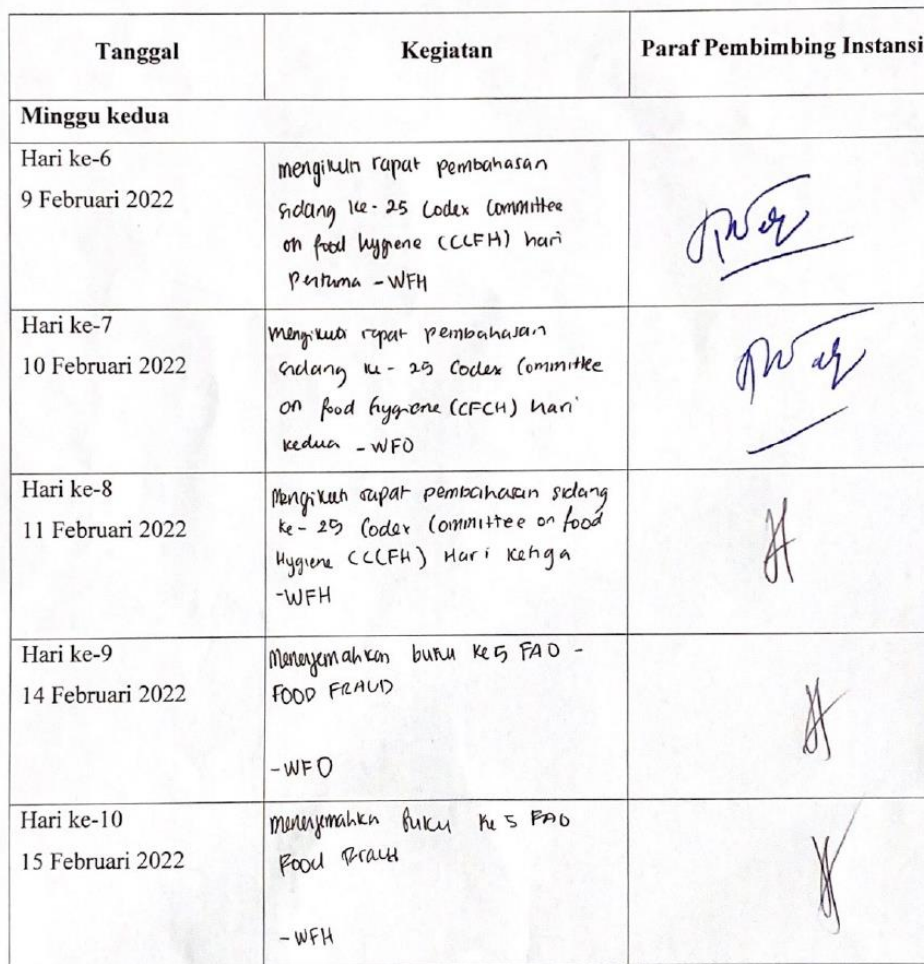 Tanggal
Kegiatan
Paraf Pembimbing Instansi
Minggu kedua
Hari ke-6
9 Februari 2022
mengikuti rapat pembahasan
sidang ke-25 Codex Committee
on food hygiene (CCFH) hari
Pertama - WFH
Hari ke-7
10 Februari 2022
mengikuti rapat pembahasan
sidang ke-25 Codex Committee
on food hygiene (CFCH) hari
kedua - WFO
Hari ke-8
11 Februari 2022
Mengikuti rapat pembahasan sidang
ke-25 Codex Committee on food
Hygiene (CCCFH) Hari Ketiga
-WFH
Hari ke-9
14 Februari 2022
Menerjemahkan buku ke 5 FAO -
FOOD FRAUD
-WFO
Hari ke-10
15 Februari 2022
menerjemahkan buku ke 5 FAO
Food
-WFH